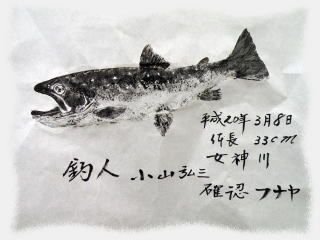 平成20年3月8日
体長 33cm
女神川
釣人 小山弘三
確認 フナヤ